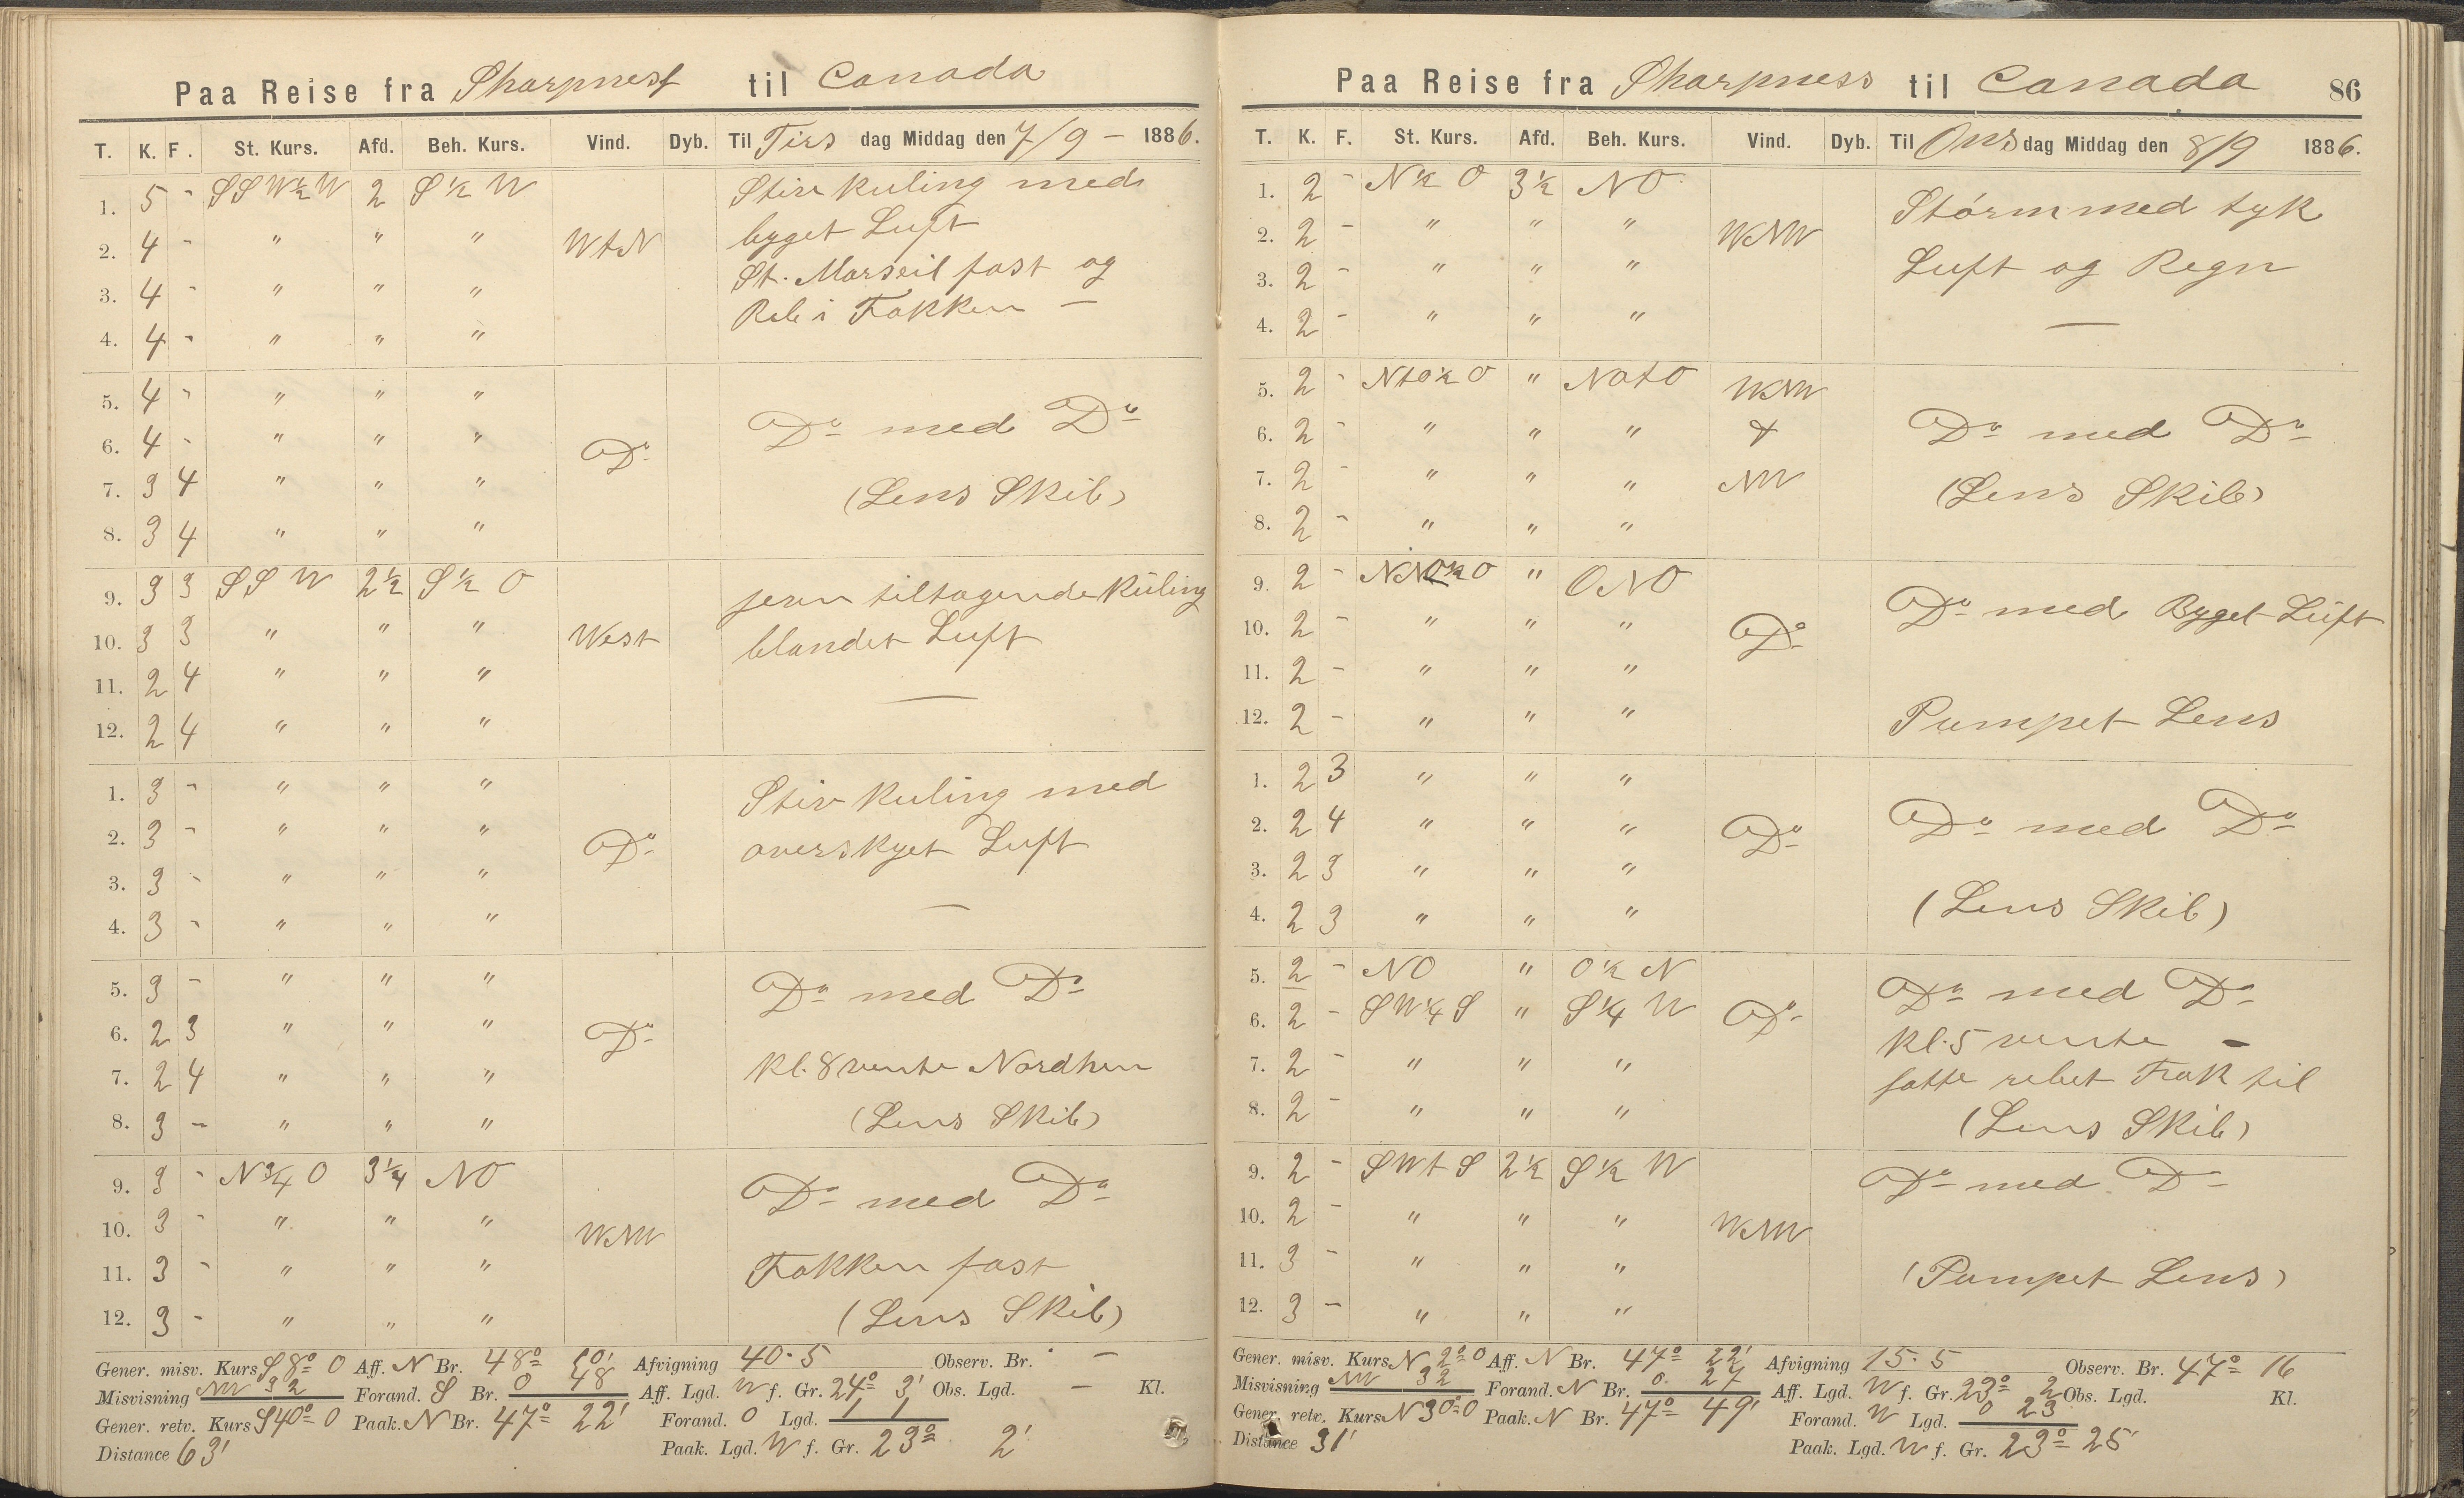 Paa Reise fra Sharpness til Canada
T. K. F. St. Kurs. Afd. Beh. Kurs. Vind. Dyb. Til Tirs dag Middag den 7/9 – 1886.
1. 5 - SSW½W 2 S½W Stiv Kuling med
2. 4 - " " " WtN byget Luft
3. 4 - " " " St. Marseil fast og
4. 4 - " " " Reb i Fokken —
5. 4 - " " "
6. 4 - " " " Do Do med Do
7. 3 4 " " " (Lens Skib)
8. 3 4 " " "
9. 3 3 SSW 2½ S½O jevn tiltagende Kuling
10. 3 3 " " " West blandet Luft
11. 2 4 " " " —
12. 2 4 " " "
1. 3 - " " " Stiv Kuling med
2. 3 - " " " Do overskyet Luft
3. 3 - " " "
4. 3 - " " " —
5. 3 - " " " Do med Do
6. 2 3 " " " Do
7. 2 4 " " " Kl. 8 vente Nordhen
8. 3 - " " " (Lens Skib)
9. 3 - N¾O 3¼ NO Do med Do
10. 3 - " " " WNW
11. 3 - " " " Fokken fast
12. 3 - " " " (Lens Skib)
Gener. misv. Kurs S 8° O Aff. N Br. 48° 10' Afvigning 40.5 Observ. Br. —
Misvisning NW 32 Forand. S Br. 0 48 Aff. Lgd. W f. Gr. 24° 3' Obs. Lgd. — Kl.
Gener. retv. Kurs S 40° O Paak. N Br. 47° 22' Forand. O Lgd. 1 1
Distance 63' Paak. Lgd. W f. Gr. 23° 2'
Paa Reise fra Sharpness til Canada 86
T. K. F. St. Kurs. Afd. Beh. Kurs. Vind. Dyb. Til Ons dag Middag den 8/9 1886.
1. 2 - N½O 3½ NO Storm med tyk
2. 2 - " " " WNW
3. 2 - " " " Luft og Regn
4. 2 - " " " —
5. 2 - NtO½O " NOtO WNW
6. 2 - " " " & Do med Do
7. 2 - " " " NW (Lens Skib)
8. 2 - " " "
9. 2 - NNO½O " ONO Do med Byget Luft
10. 2 - " " " Do
11. 2 - " " "
12. 2 - " " " Pumpet Lens
1. 2 3 " " "
2. 2 4 " " " Do Do med Do
3. 2 3 " " "
4. 2 3 " " " (Lens Skib)
5. 2 - NO " O½N Do med Do
6. 2 - SW¼S " S¼W Do Kl. 5 vente –
7. 2 - " " " satte rebet Fok til
8. 2 - " " " (Lens Skib)
9. 2 - SWtS 2½ S½W Do med Do
10. 2 - " " " WNW
11. 3 - " " " (Pumpet Lens)
12. 3 - " " "
Gener. misv. Kurs N 2° O Aff. N Br. 47° 22' Afvigning 15.5 Observ. Br. 47° 16
Misvisning NW 32 Forand. N Br. 0. 27 Aff. Lgd. W f. Gr. 23° 2 Obs. Lgd. Kl.
Gener. retv. Kurs N 30° O Paak. N Br. 47° 49' Forand. W Lgd. 0 23
Distance 31' Paak. Lgd. W f. Gr. 23° 25'